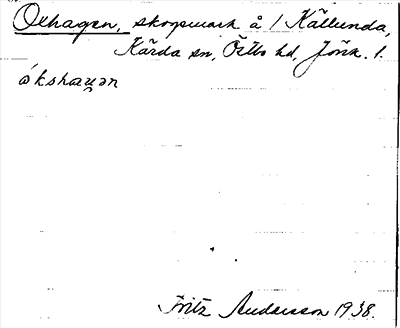 Oxhagen, skogsmark å 1 Källunda,
Kärda sn, Östbo hd, Jönk. l.
ókshaγən
Fritz Andersson 1938.